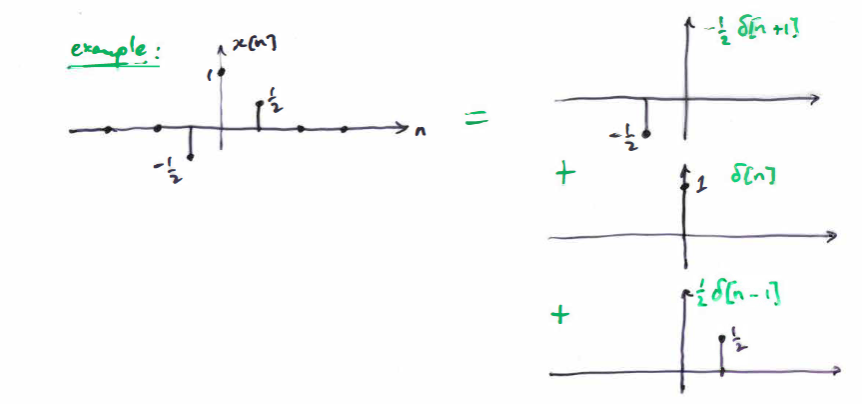 example:
x[n]
1
1/2
-1/2
n
=
-1/2 δ[n+1]
-1/2
+
1
δ[n]
+
1/2 δ[n-1]
1/2